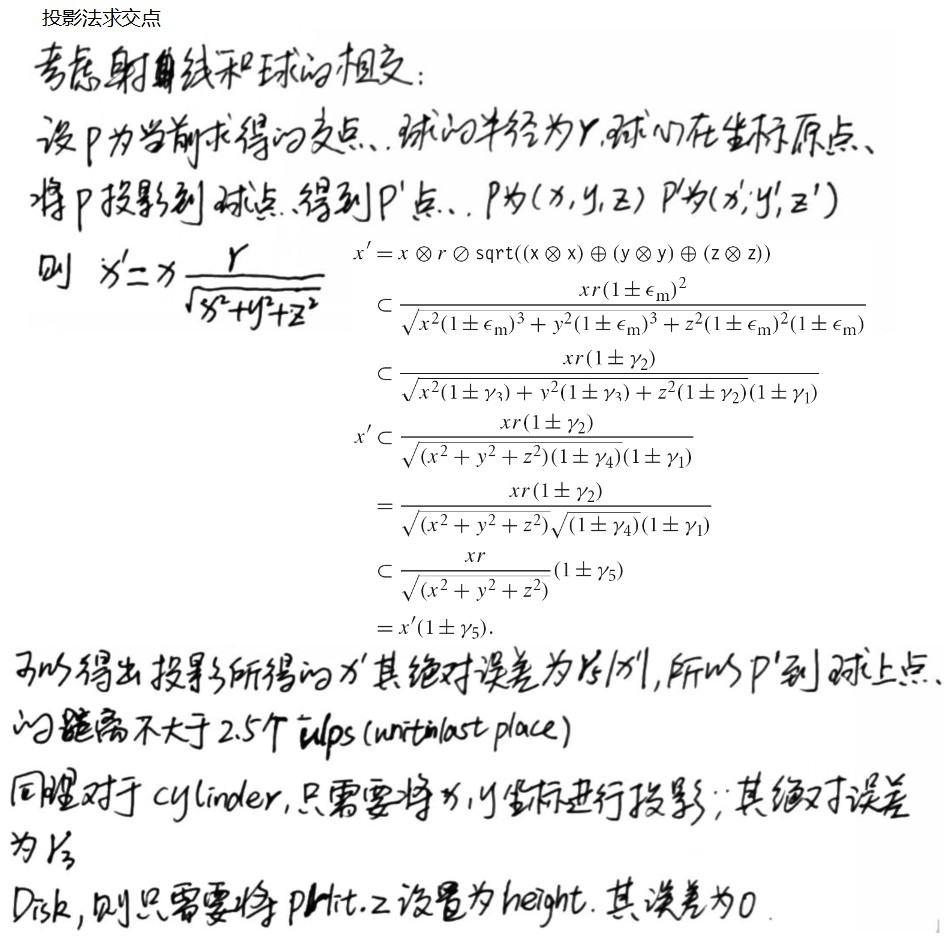 投影法求交点
考虑射线和球的相交:
设P为当前求得的交点、球的半径为r,球心在坐标原点、
将P投影到球点、得到P'点、P为(x,y,z) P'为(x',y',z')
则 x'=x r/√(x²+y²+z²)
x' = x ⊗ r ⊘ sqrt((x ⊗ x) ⊕ (y ⊗ y) ⊕ (z ⊗ z))
⊂ xr(1±ϵm)² / √(x²(1±ϵm)³ + y²(1±ϵm)³ + z²(1±ϵm)²)(1±ϵm)
⊂ xr(1±γ2) / √(x²(1±γ3) + y²(1±γ3) + z²(1±γ2))(1±γ1)
x' ⊂ xr(1±γ2) / √((x² + y² + z²)(1±γ4))(1±γ1)
= xr(1±γ2) / √(x² + y² + z²)√(1±γ4)(1±γ1)
⊂ xr / √(x² + y² + z²) (1±γ5)
= x'(1±γ5).
可以得出投影所得的x'其绝对误差为γ5|x'|,所以P'到球上点、
的距离不大于2.5个ulps(unit in last place)
同理对于cylinder,只需要将x,y坐标进行投影;其绝对误差
为γ3
Disk,则只需要将phit.z设置为height.其误差为0.